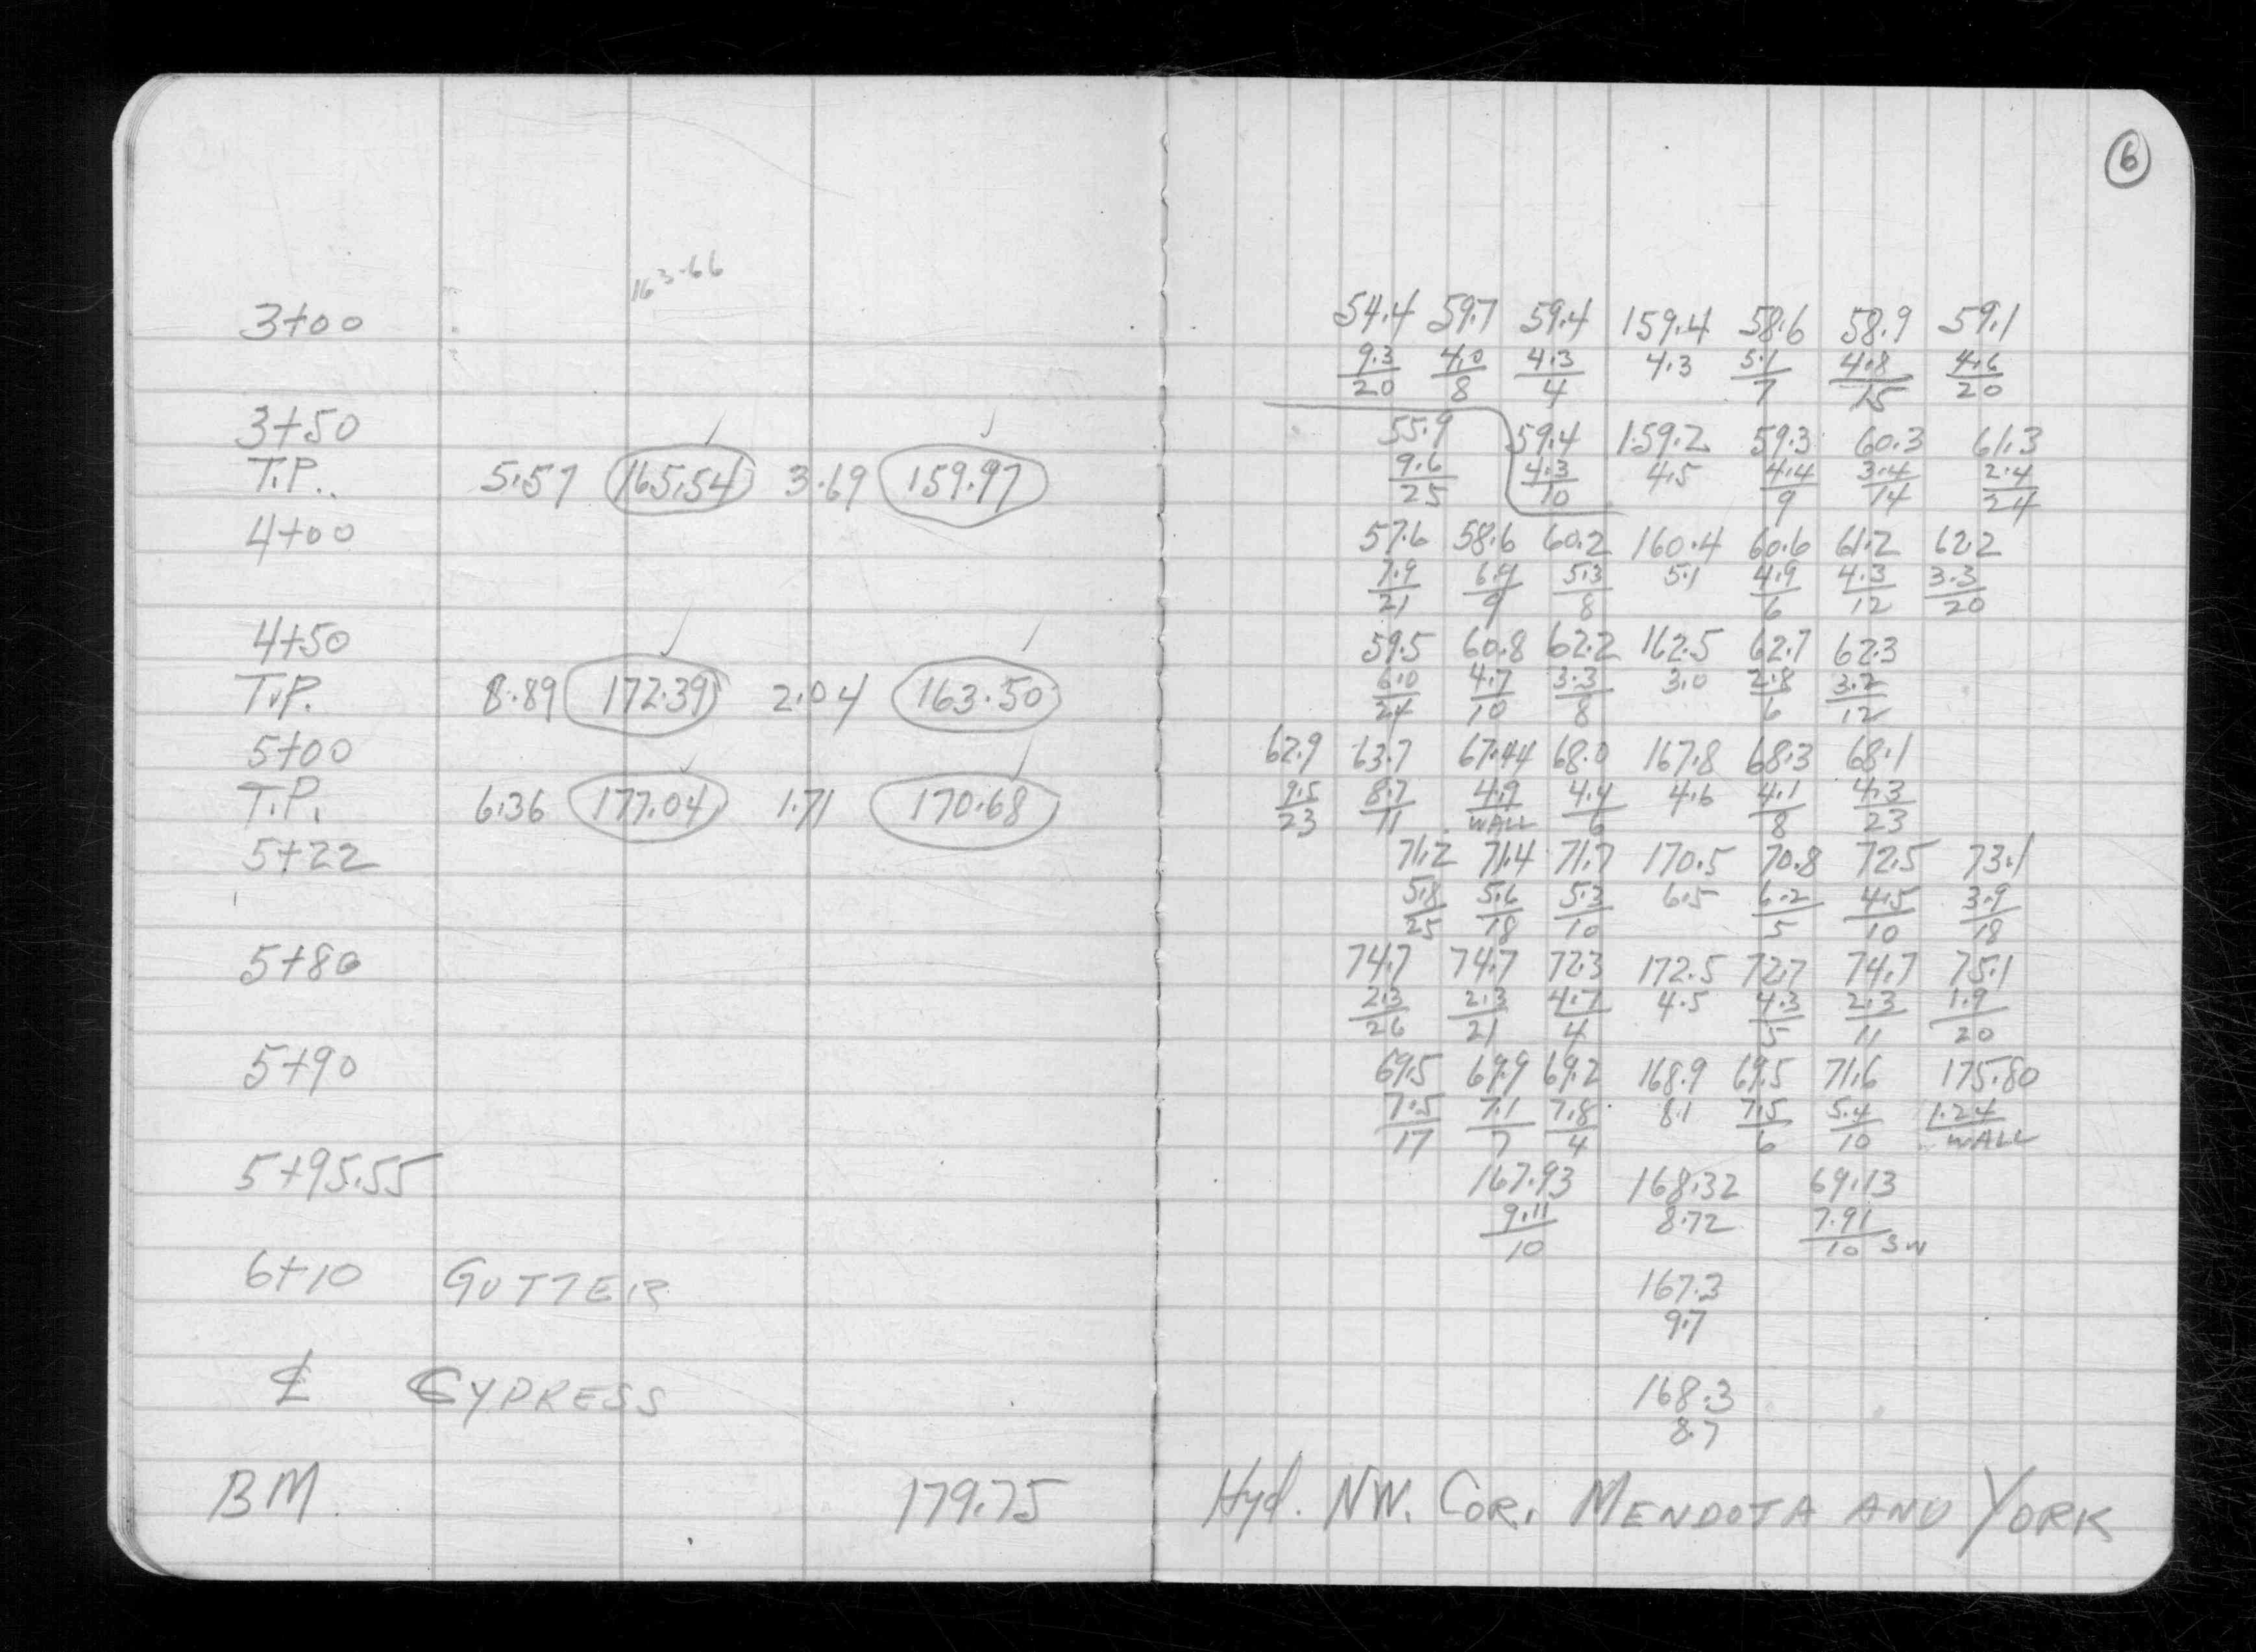 6
163.66
3+00 54.4 59.7 59.4 159.4 58.6 58.9 59.1
9.3/20 4.0/8 4.3/4 4.3 5.1/7 4.8/15 4.6/20
3+50 55.9 59.4 159.2 59.3 60.3 61.3
T.P. 5.57 165.54 3.69 159.97 9.6/25 4.3/10 4.5 4.4/9 3.4/14 2.4/24
4+00 57.6 58.6 60.2 160.4 60.6 61.2 62.2
7.9/21 6.9/9 5.3/8 5.1 4.9/6 4.3/12 3.3/20
4+50 59.5 60.8 62.2 162.5 62.7 62.3
T.P. 8.89 172.39 2.04 163.50 6.0/24 4.7/10 3.3/8 3.0 2.8/6 3.2/12
5+00 62.9 63.7 67.44 68.0 167.8 68.3 68.1
T.P. 6.36 177.04 1.71 170.68 9.5/23 8.7/11 4.9/WALL 4.4/6 4.6 4.1/8 4.3/23
5+22 71.2 71.4 71.7 170.5 70.8 72.5 73.1
5.8/25 5.6/18 5.3/10 6.5 6.2/5 4.5/10 3.9/18
5+80 74.7 74.7 72.3 172.5 72.7 74.7 75.1
2.3/26 2.3/21 4.7/4 4.5 4.3/5 2.3/11 1.9/20
5+90 69.5 69.9 69.2 168.9 69.5 71.6 175.80
7.5/17 7.1/7 7.8/4 8.1 7.5/6 5.4/10 1.24/WALL
5+95.55 167.93 168.32 69.13
9.11/10 8.72 7.91/10 SW
6+10 GUTTER 167.3
9.7
℄ CYPRESS 168.3
8.7
BM 179.75 Hyd. NW. COR. MENDOTA AND YORK